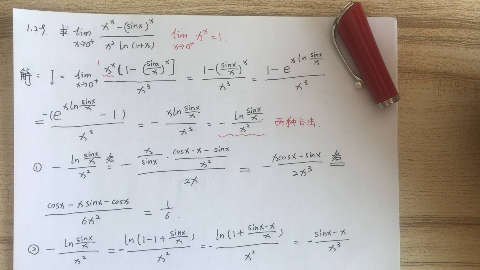 1.29 求 lim x→0⁺ (x^x-(sinx)^x)/(x² ln(1+x)) lim x→0⁺ x^x=1
解: I = lim x→0⁺ x^x[1-(sinx/x)^x]/x³ = (1-(sinx/x)^x)/x³ = (1-e^(x ln sinx/x))/x³
= -(e^(x ln sinx/x) - 1)/x³ = - (x ln sinx/x)/x³ = - (ln sinx/x)/x² 两种方法.
① - (ln sinx/x)/x² 洛 = - (x/sinx · (cosx·x-sinx)/x²)/2x = - (xcosx-sinx)/2x³ 洛
(cosx-xsinx-cosx)/6x² = 1/6.
② - (ln sinx/x)/x² = -ln(1-1+sinx/x)/x² = -ln(1+(sinx-x)/x)/x² = - (sinx-x)/x³